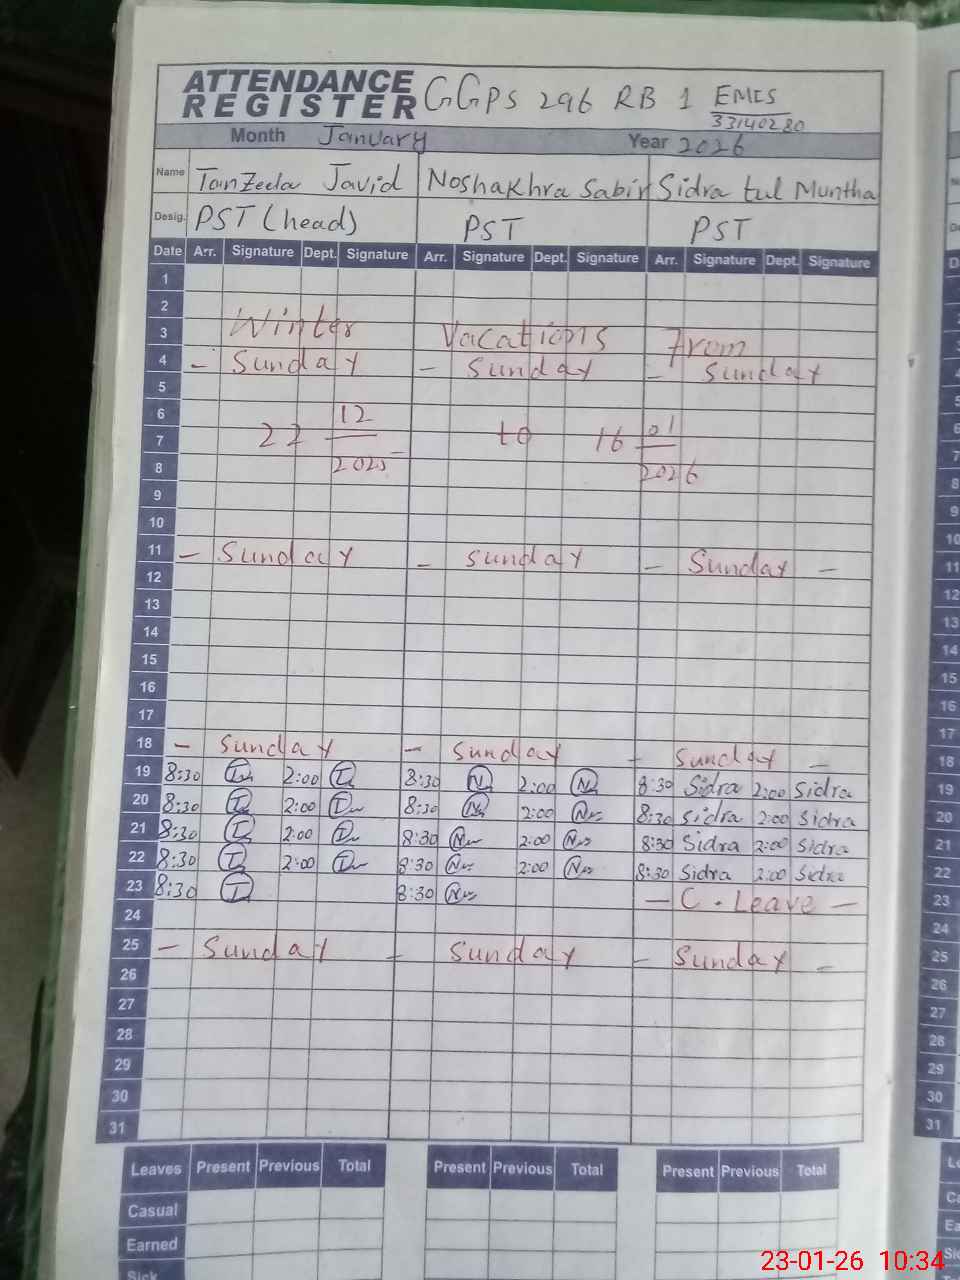 ATTENDANCE REGISTER GGPS 296 RB 1 EMIS 33140280
Month January Year 2026
Name Tanzeela Javid Noshakhra Sabir Sidra tul Muntha
Desig. PST (head) PST PST
Date Arr. Signature Dept. Signature Arr. Signature Dept. Signature Arr. Signature Dept. Signature
1
2
3 Winter Vacations From
4 - Sunday - Sunday - Sunday
5
6
7 22 12/2025 to 16 01/2026
8
9
10
11 - Sunday - Sunday - Sunday -
12
13
14
15
16
17
18 - Sunday - Sunday - Sunday -
19 8:30 2:00 8:30 2:00 8:30 Sidra 2:00 Sidra
20 8:30 2:00 8:30 2:00 8:30 Sidra 2:00 Sidra
21 8:30 2:00 8:30 2:00 8:30 Sidra 2:00 Sidra
22 8:30 2:00 8:30 2:00 8:30 Sidra 2:00 Sidra
23 8:30 8:30 - C. Leave -
24
25 - Sunday - Sunday - Sunday -
26
27
28
29
30
31
Leaves Present Previous Total Present Previous Total Present Previous Total
Casual
Earned
Sick
23-01-26 10:34